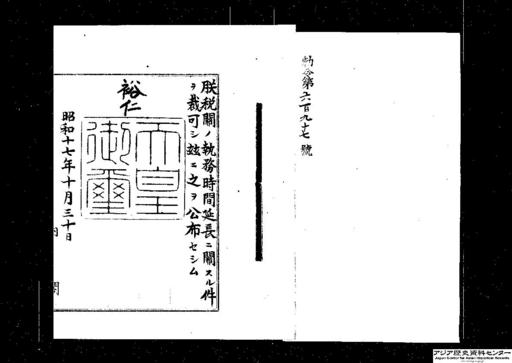 勅令第六百九十七號
朕税關ノ執務時間延長ニ關スル件
ヲ裁可シ玆ニ之ヲ公布セシム
裕仁
天皇
御璽
昭和十七年十月三十日
アジア歴史資料センター
Japan Center for Asian Historical Records